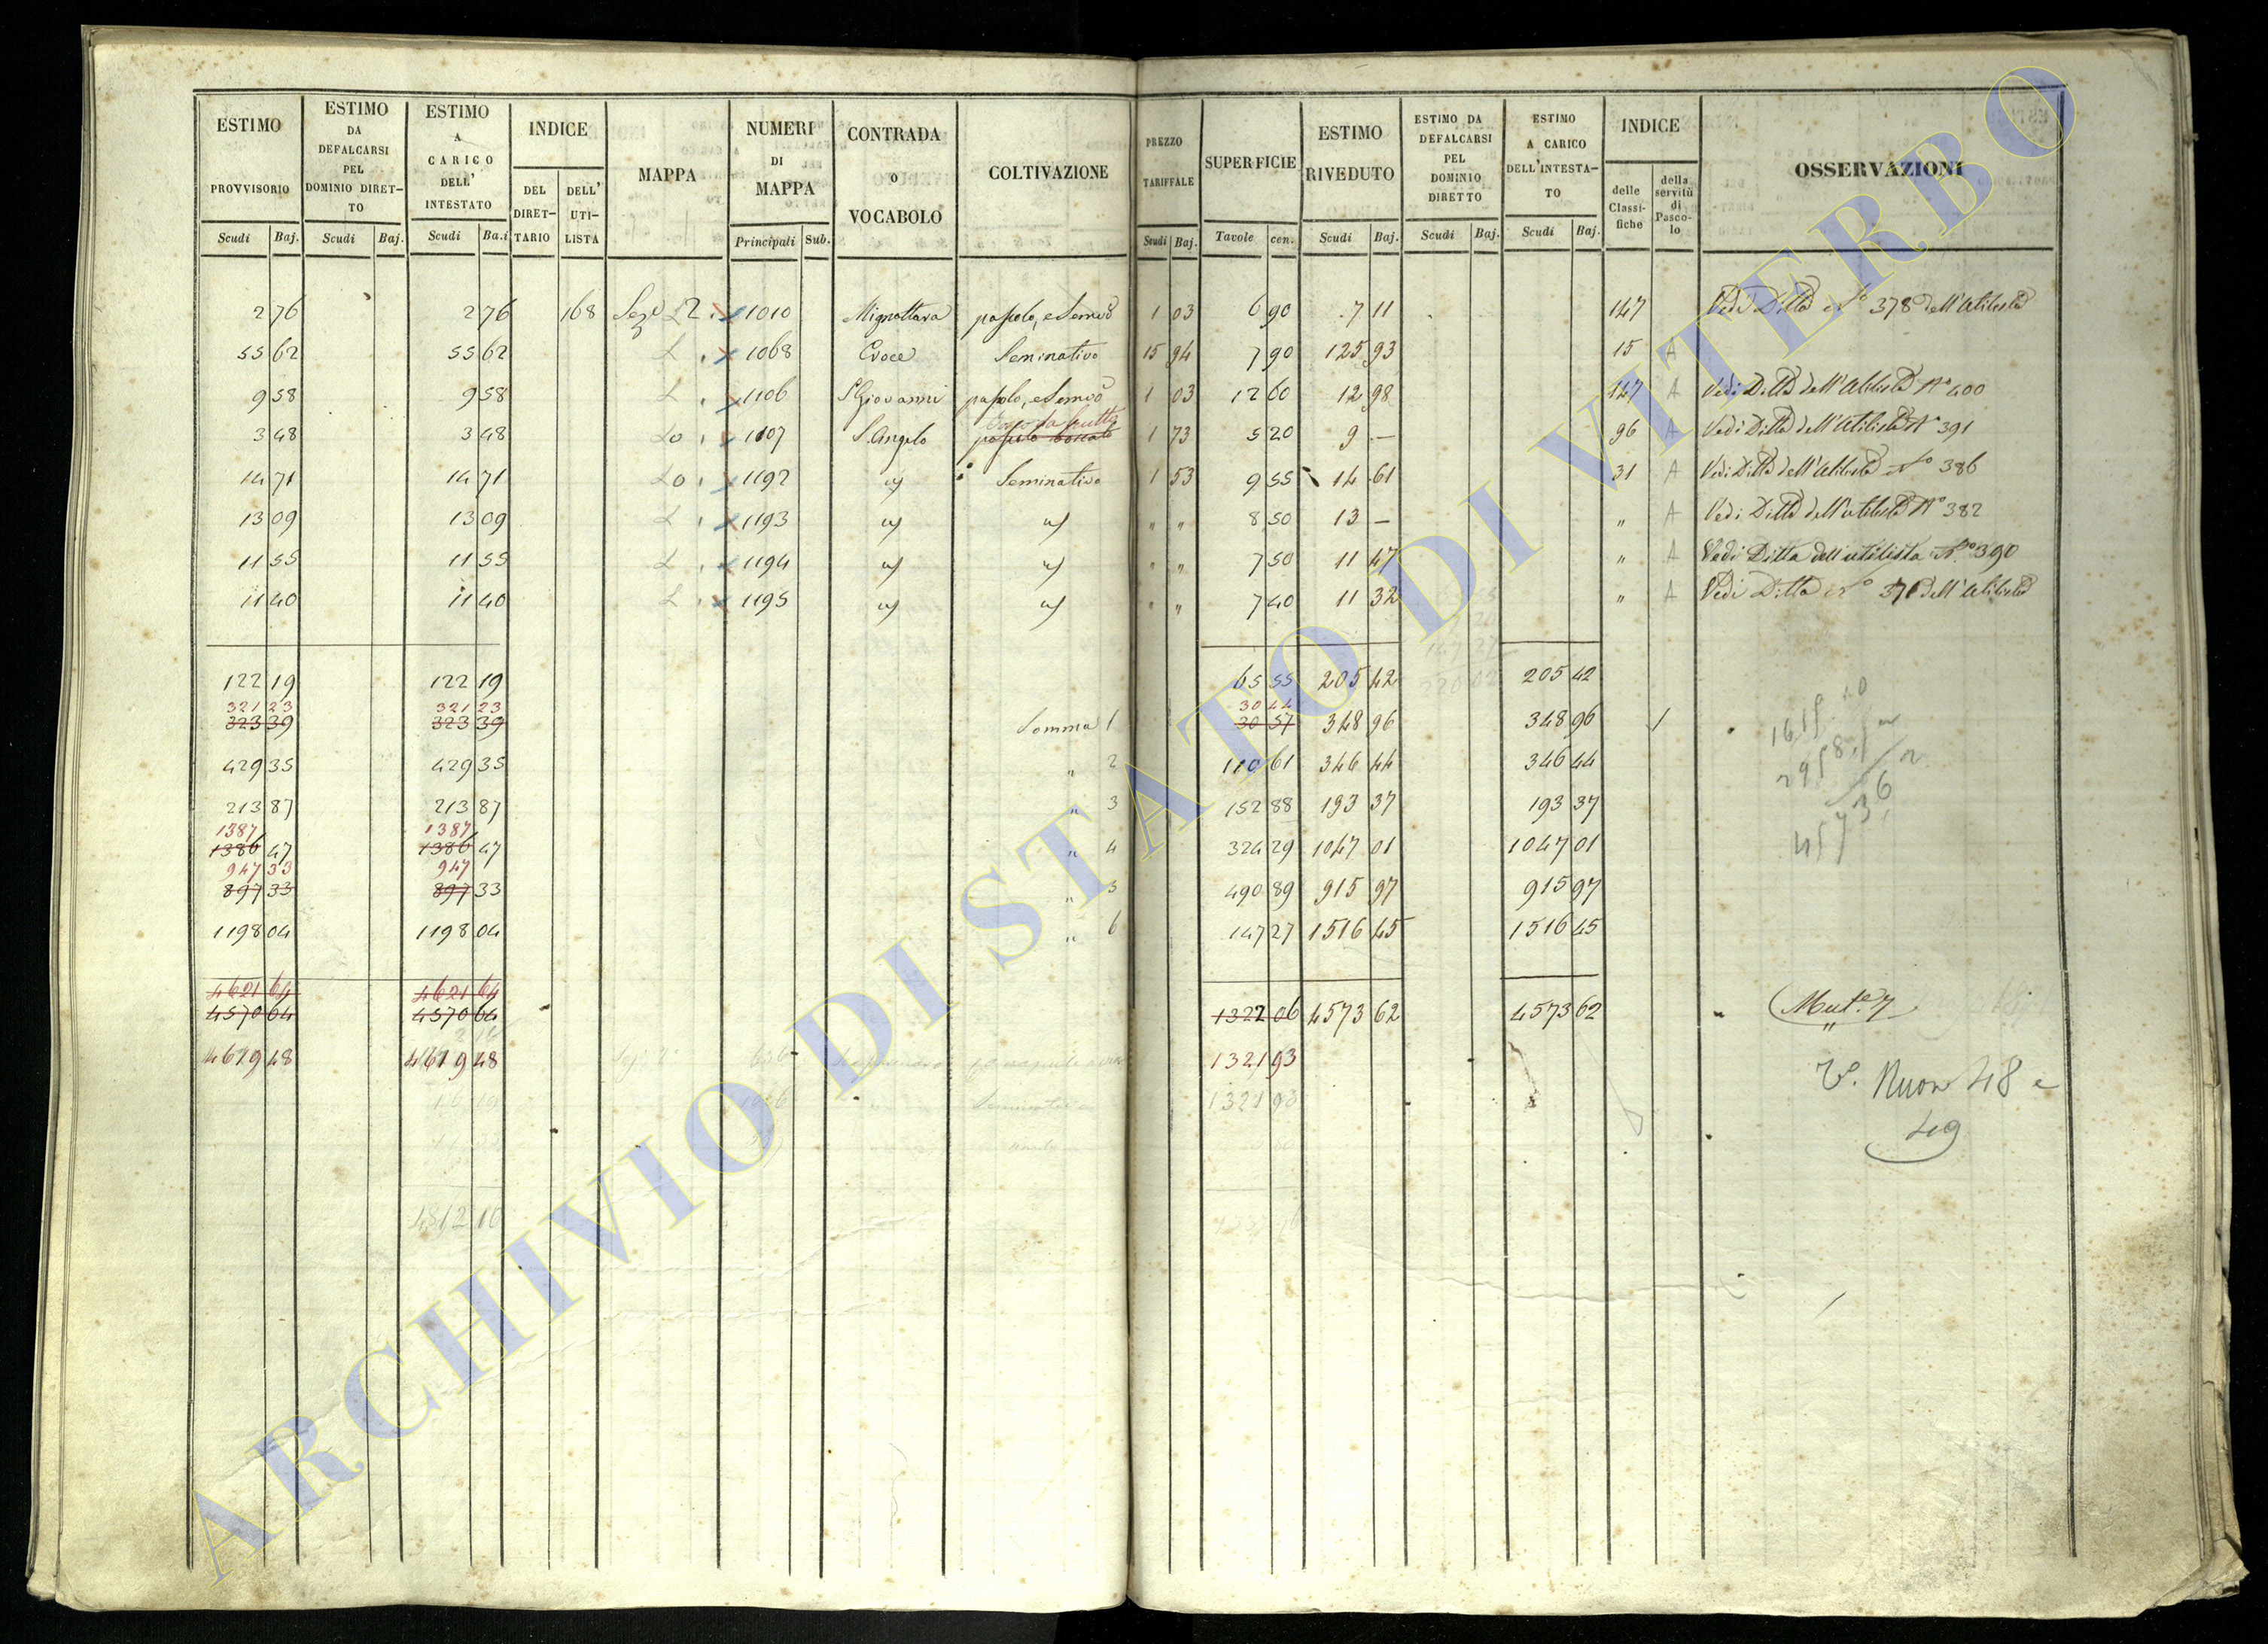 ESTIMO PROVVISORIO Scudi Baj.
ESTIMO DA DEFALCARSI PEL DOMINIO DIRETTO Scudi Baj.
ESTIMO A CARICO DELL' INTESTATO Scudi Ba.i
INDICE DEL DIRETTARIO DELL' UTILISTA
MAPPA
NUMERI DI MAPPA Principali Sub.
CONTRADA O VOCABOLO
COLTIVAZIONE
PREZZO TARIFFALE Scudi Baj.
SUPERFICIE Tavole cen.
ESTIMO RIVEDUTO Scudi Baj.
ESTIMO DA DEFALCARSI PEL DOMINIO DIRETTO Scudi Baj.
ESTIMO A CARICO DELL'INTESTATO Scudi Baj.
INDICE delle Classifiche della servitù di Pascolo
OSSERVAZIONI
2 76 2 76 168 Seze 2 1010 Mignattara pascolo, e Semivo 1 03 6 90 7 11 147 Vedi Ditta No 378 dell'Utilista
55 62 55 62 1068 Croce Seminativo 15 94 7 90 125 93 15 A
9 58 9 58 1106 S Giovanni pascolo, e Semivo 1 03 12 60 12 98 147 A Vedi Ditta dell'Utilista No 400
3 48 3 48 1107 S. Angelo da frutta pascolo boscato 1 73 5 20 9 — 96 A Vedi Ditta dell'Utilista No 391
14 71 14 71 1192 Seminativo 1 53 9 55 14 61 31 A Vedi Ditta dell'Utilista No 386
13 09 13 09 1193 " " 8 50 13 — " A Vedi Ditta dell'utilista No 382
11 55 11 55 1194 " " 7 50 11 47 " A Vedi Ditta dell'utilista No 390
11 40 11 40 1195 " " 7 40 11 32 " A Vedi Ditta No 371 dell'Utilista
122 19 122 19 65 55 205 42 205 42
321 23 321 23 30 44
323 39 323 39 Somma 1 30 57 348 96 348 96
429 35 429 35 " 2 110 61 346 44 346 44
213 87 213 87 " 3 152 88 193 37 193 37
1387 1387
1386 47 1386 47 " 4 324 29 1047 01 1047 01
947 33 947
897 33 897 33 " 5 490 89 915 97 915 97
1198 04 1198 04 " 6 147 27 1516 45 1516 45
4621 64 4621 64
4570 64 4570 64 1322 06 4573 62 4573 62 Mute. 7
4619 48 4619 48 1321 93
1321 93
V. Nuov 48 e
49
4812 10
ARCHIVIO DI STATO DI VITERBO